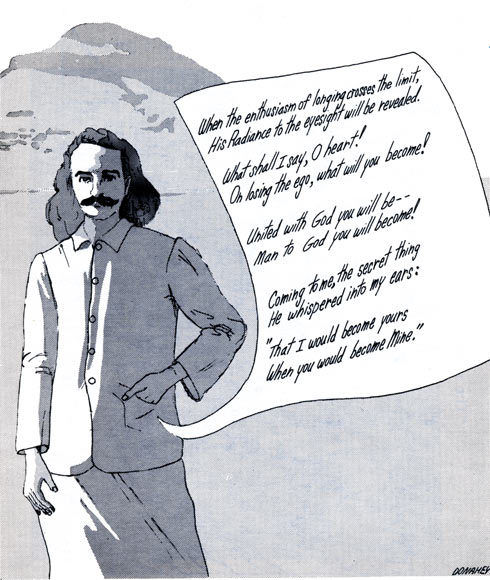 When the enthusiasm of longing crosses the limit,
His Radiance to the eyesight will be revealed.
What shall I say, O heart!
On losing the ego, what will you become!
United with God you will be--
Man to God you will become!
Coming to me, the secret thing
He whispered into my ears:
"That I would become yours
When you would become Mine."
DONAHEY